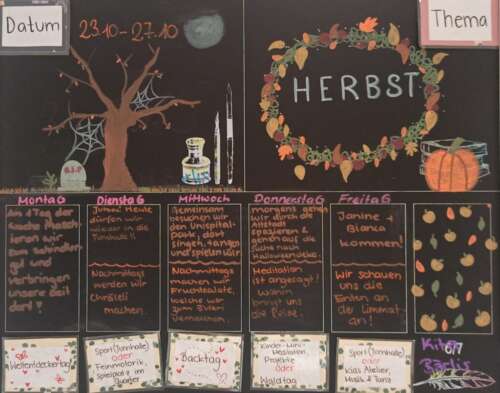 Datum
23.10-27.10
Thema
HERBST
R.I.P
Montag
Am 1 Tag der
Woche
wir
zum
und
verbringen
unsere Zeit
dort!
Dienstag
Heute
dürfen wir
wieder in die
Turnhalle!!
Nachmittags
werden wir
Chräbeli
machen.
Mittwoch
Gemeinsam
besuchen wir
den Unispital-
Park, dort
singen, tanzen
und spielen wir.
Nachmittags
machen wir
Früchtesalate,
welche wir
zum Zvieri
Donnerstag
morgens gehen
wir durch die
Altstadt
spazieren &
gehen auf die
Suche nach
Halloweendeko.
Meditation
ist angesagt!
Wohin
bringt uns
die Reise.
Freitag
Janine +
Bianca
kommen!
Wir schauen
uns die
Enten an
der Limmat
an!
Weltentdeckertag
Sport (Turnhalle)
oder
Feinmotorik,
Spielplatz im
Quartier
Backtag
Kinder-Mini-
Meditation
Projekte
oder
Waldtag
Sport (Turnhalle)
oder
Kids Atelier,
Musik & Tanz
Kita
Bärlis